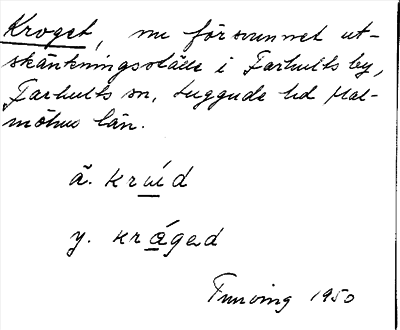 Kroget, nu försvunnet ut-
skänkningsställe i Farhults by,
Farhults sn, Luggude hd Mal-
möhus län.
ä. kruíd
y. kråged
1950